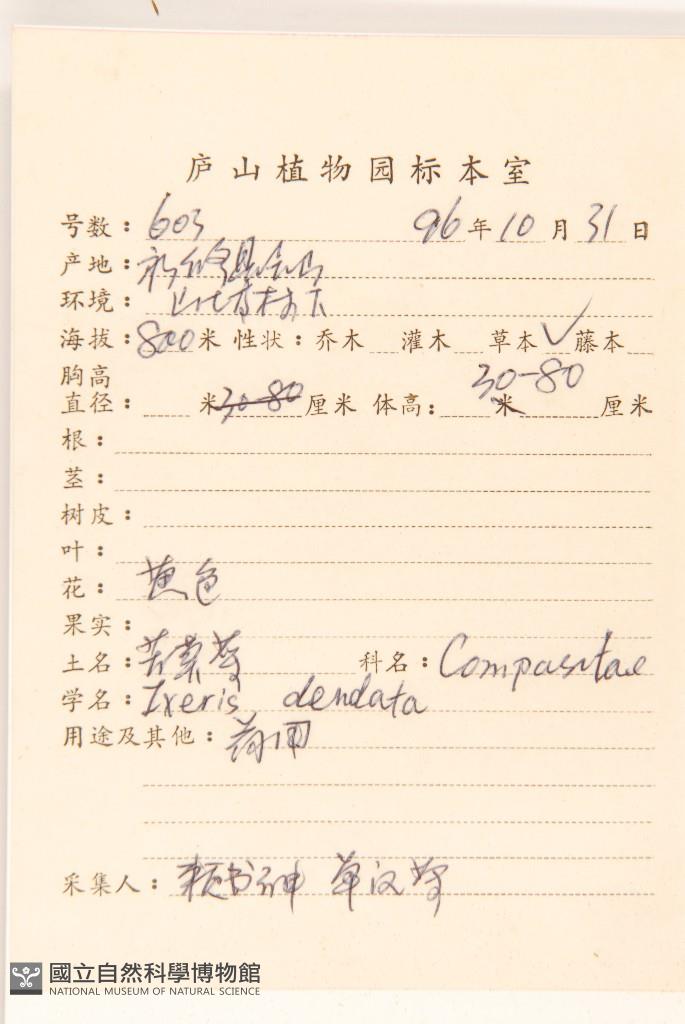 庐山植物园标本室
号数：603 96年10月31日
产地：永修县云山
环境：山坡林下
海拔：800米 性状：乔木 灌木 草本✓ 藤本
胸高
直径： 米 30-80 厘米 体高： 30-80 米 厘米
根：
茎：
树皮：
叶：
花：黄色
果实：
土名：苦荬菜 科名：Compasitae
学名：Ixeris dendata
用途及其他：药用
采集人：赖书绅 单汉荣
國立自然科學博物館
NATIONAL MUSEUM OF NATURAL SCIENCE